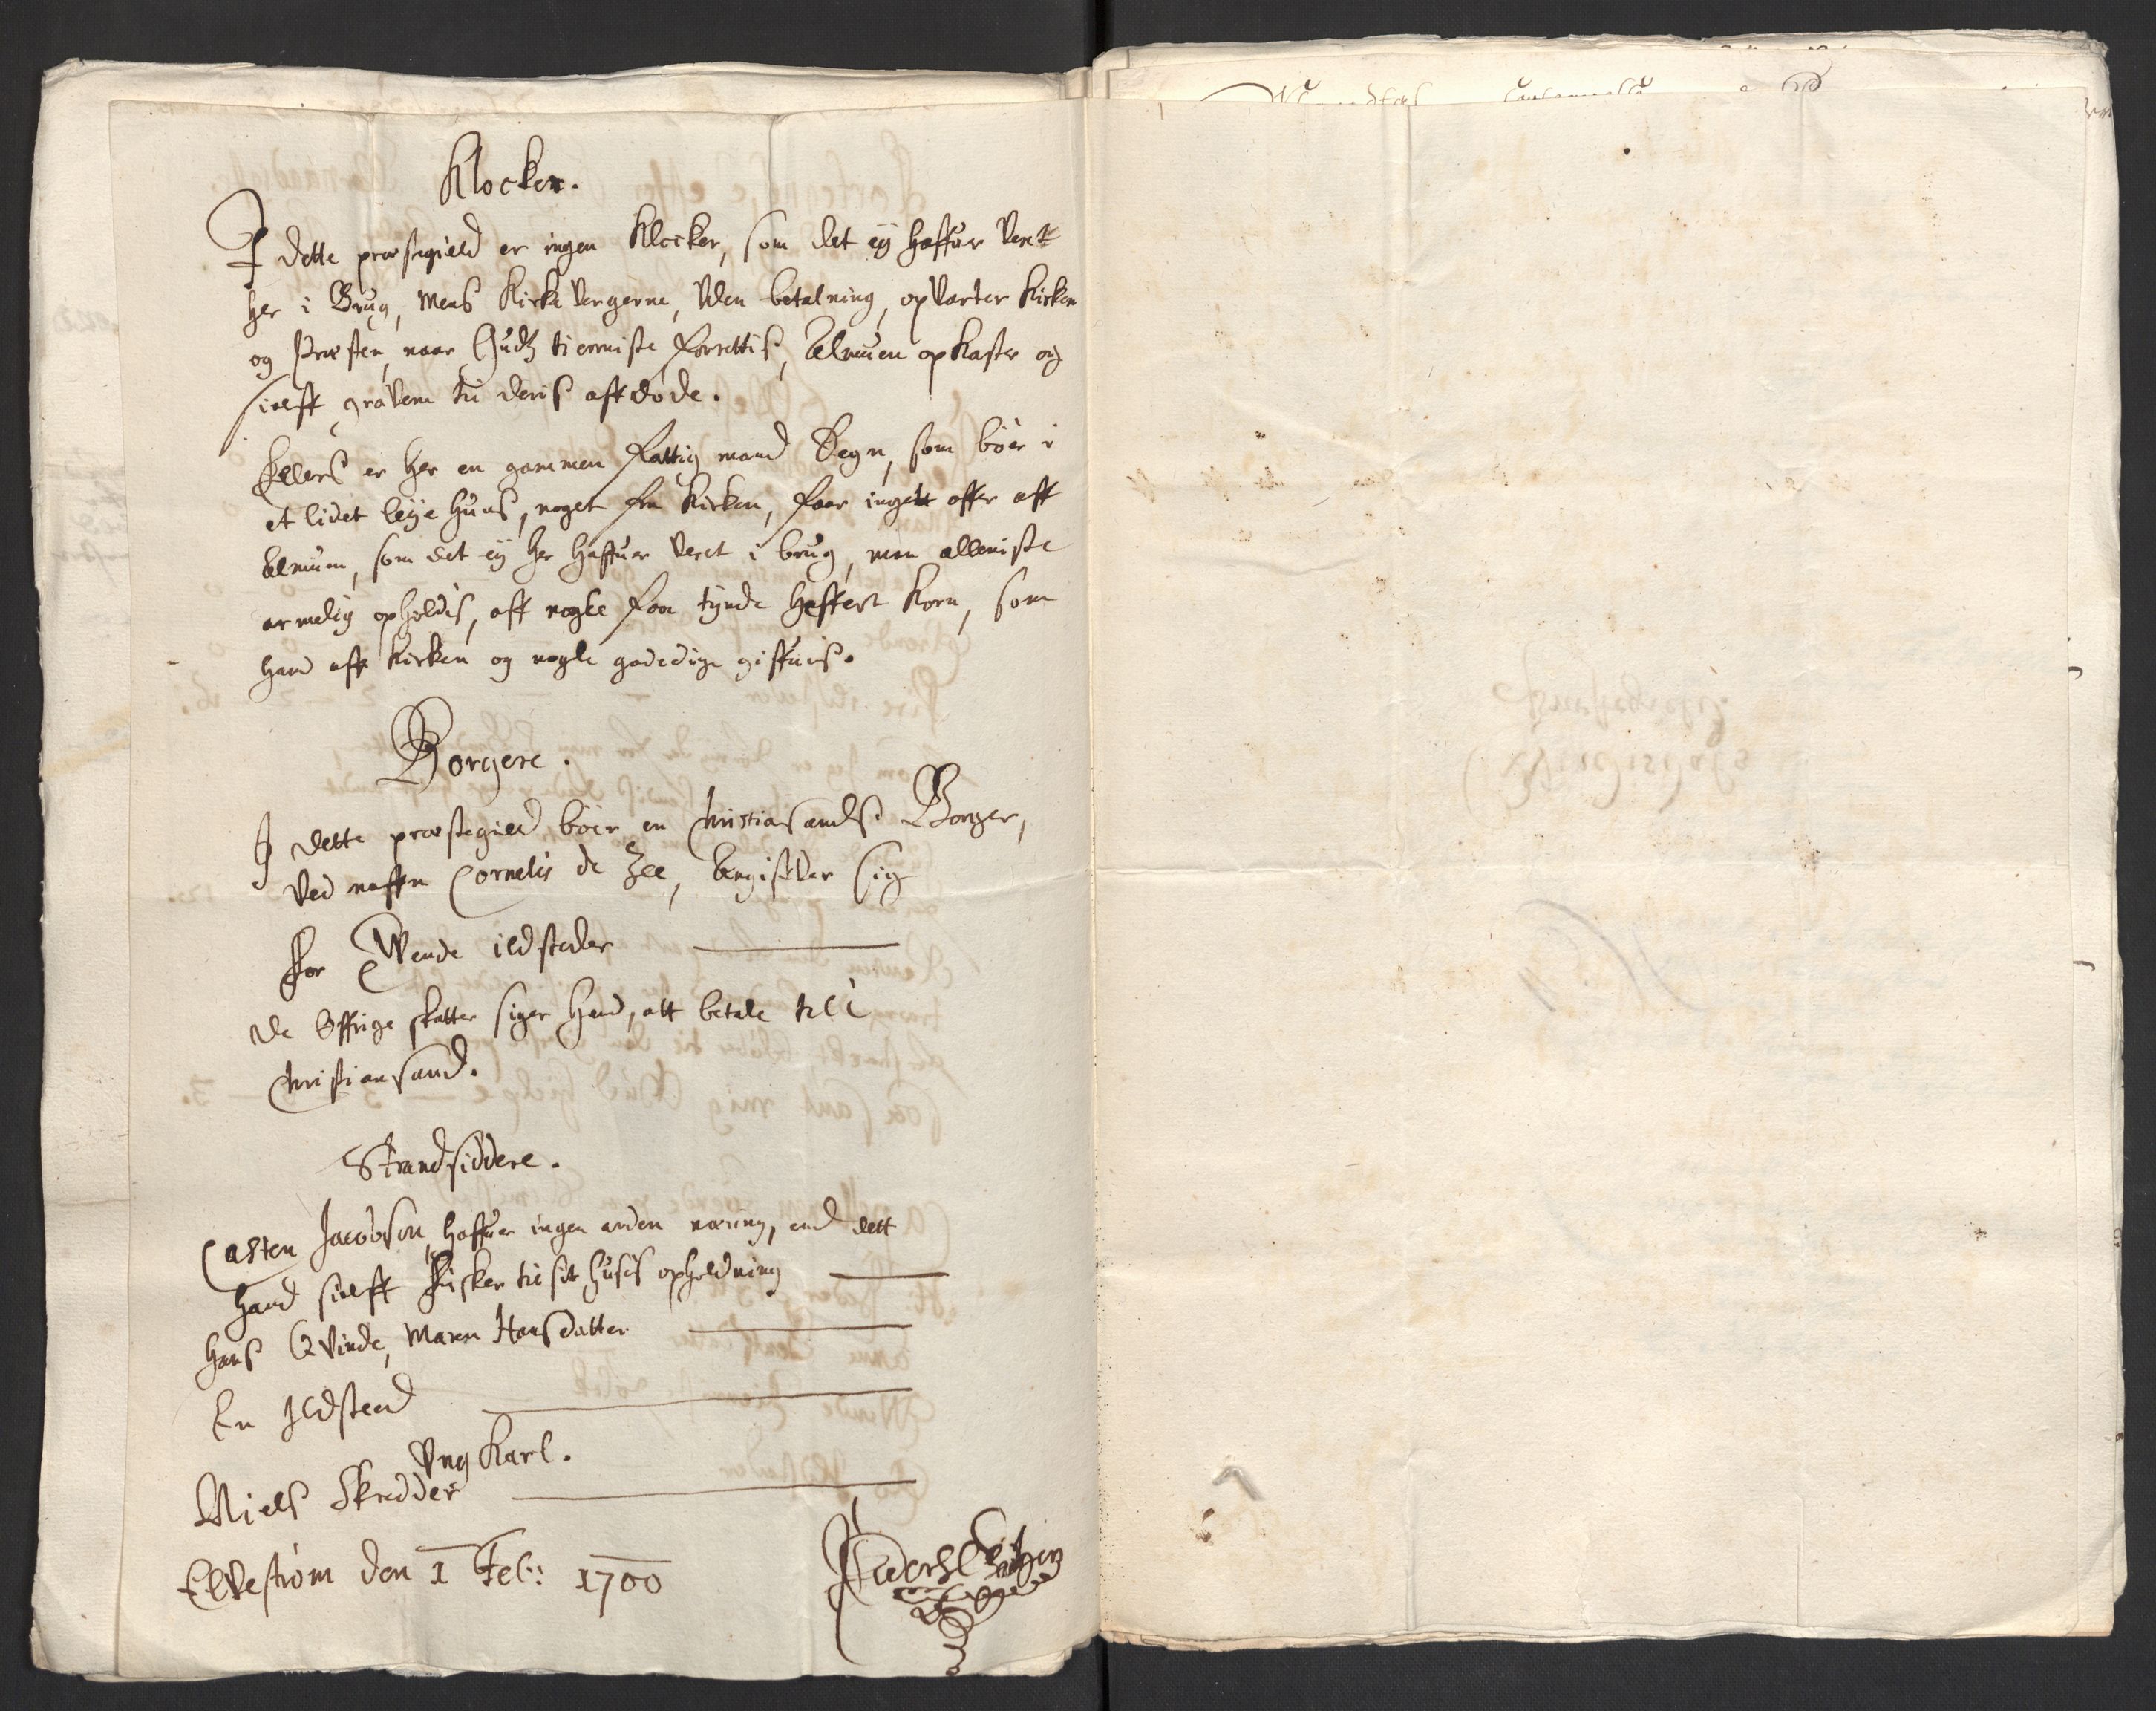 Klocker.
I dette præstegield er ingen Klocker, som det eÿ haffuer veret
her i Brug, mens Kirke vergerne, uden betalning, opvarter Kirken
og Præsten, naar Gudz tienniste forrettis, Almuen opkaster og
sielff gravene til deris affdøde.
Ellers er her en gammen fattig mand Degn, som böer i
et lidet leÿe huus, noget fra Kirken, faar ingett offer aff
Almuen, som det eÿ her haffuer veret i brug, men alleniste
armelig opholdis, aff nogle faa tÿnde haffert Korn, som
hand aff Kirken og nogle godedige giffuis.
Borgere.
I dette præstegield böer en Christiansands Borger,
ved naffn Cornelis de Zee, Angifver sig
for Tvende ildsteder
De öffrige skatter siger hand, att betale till
Christiansand.
Strandsiddere.
Casten Jacobson, haffuer ingen anden næring, end dett
hand sielff fisker til sit huusis opholdning
hans Qvinde, Maren Hansdatter
En Ildsted
Ung Karl.
Niels Skredder
Elvestrøm den 1 Feb: 1700